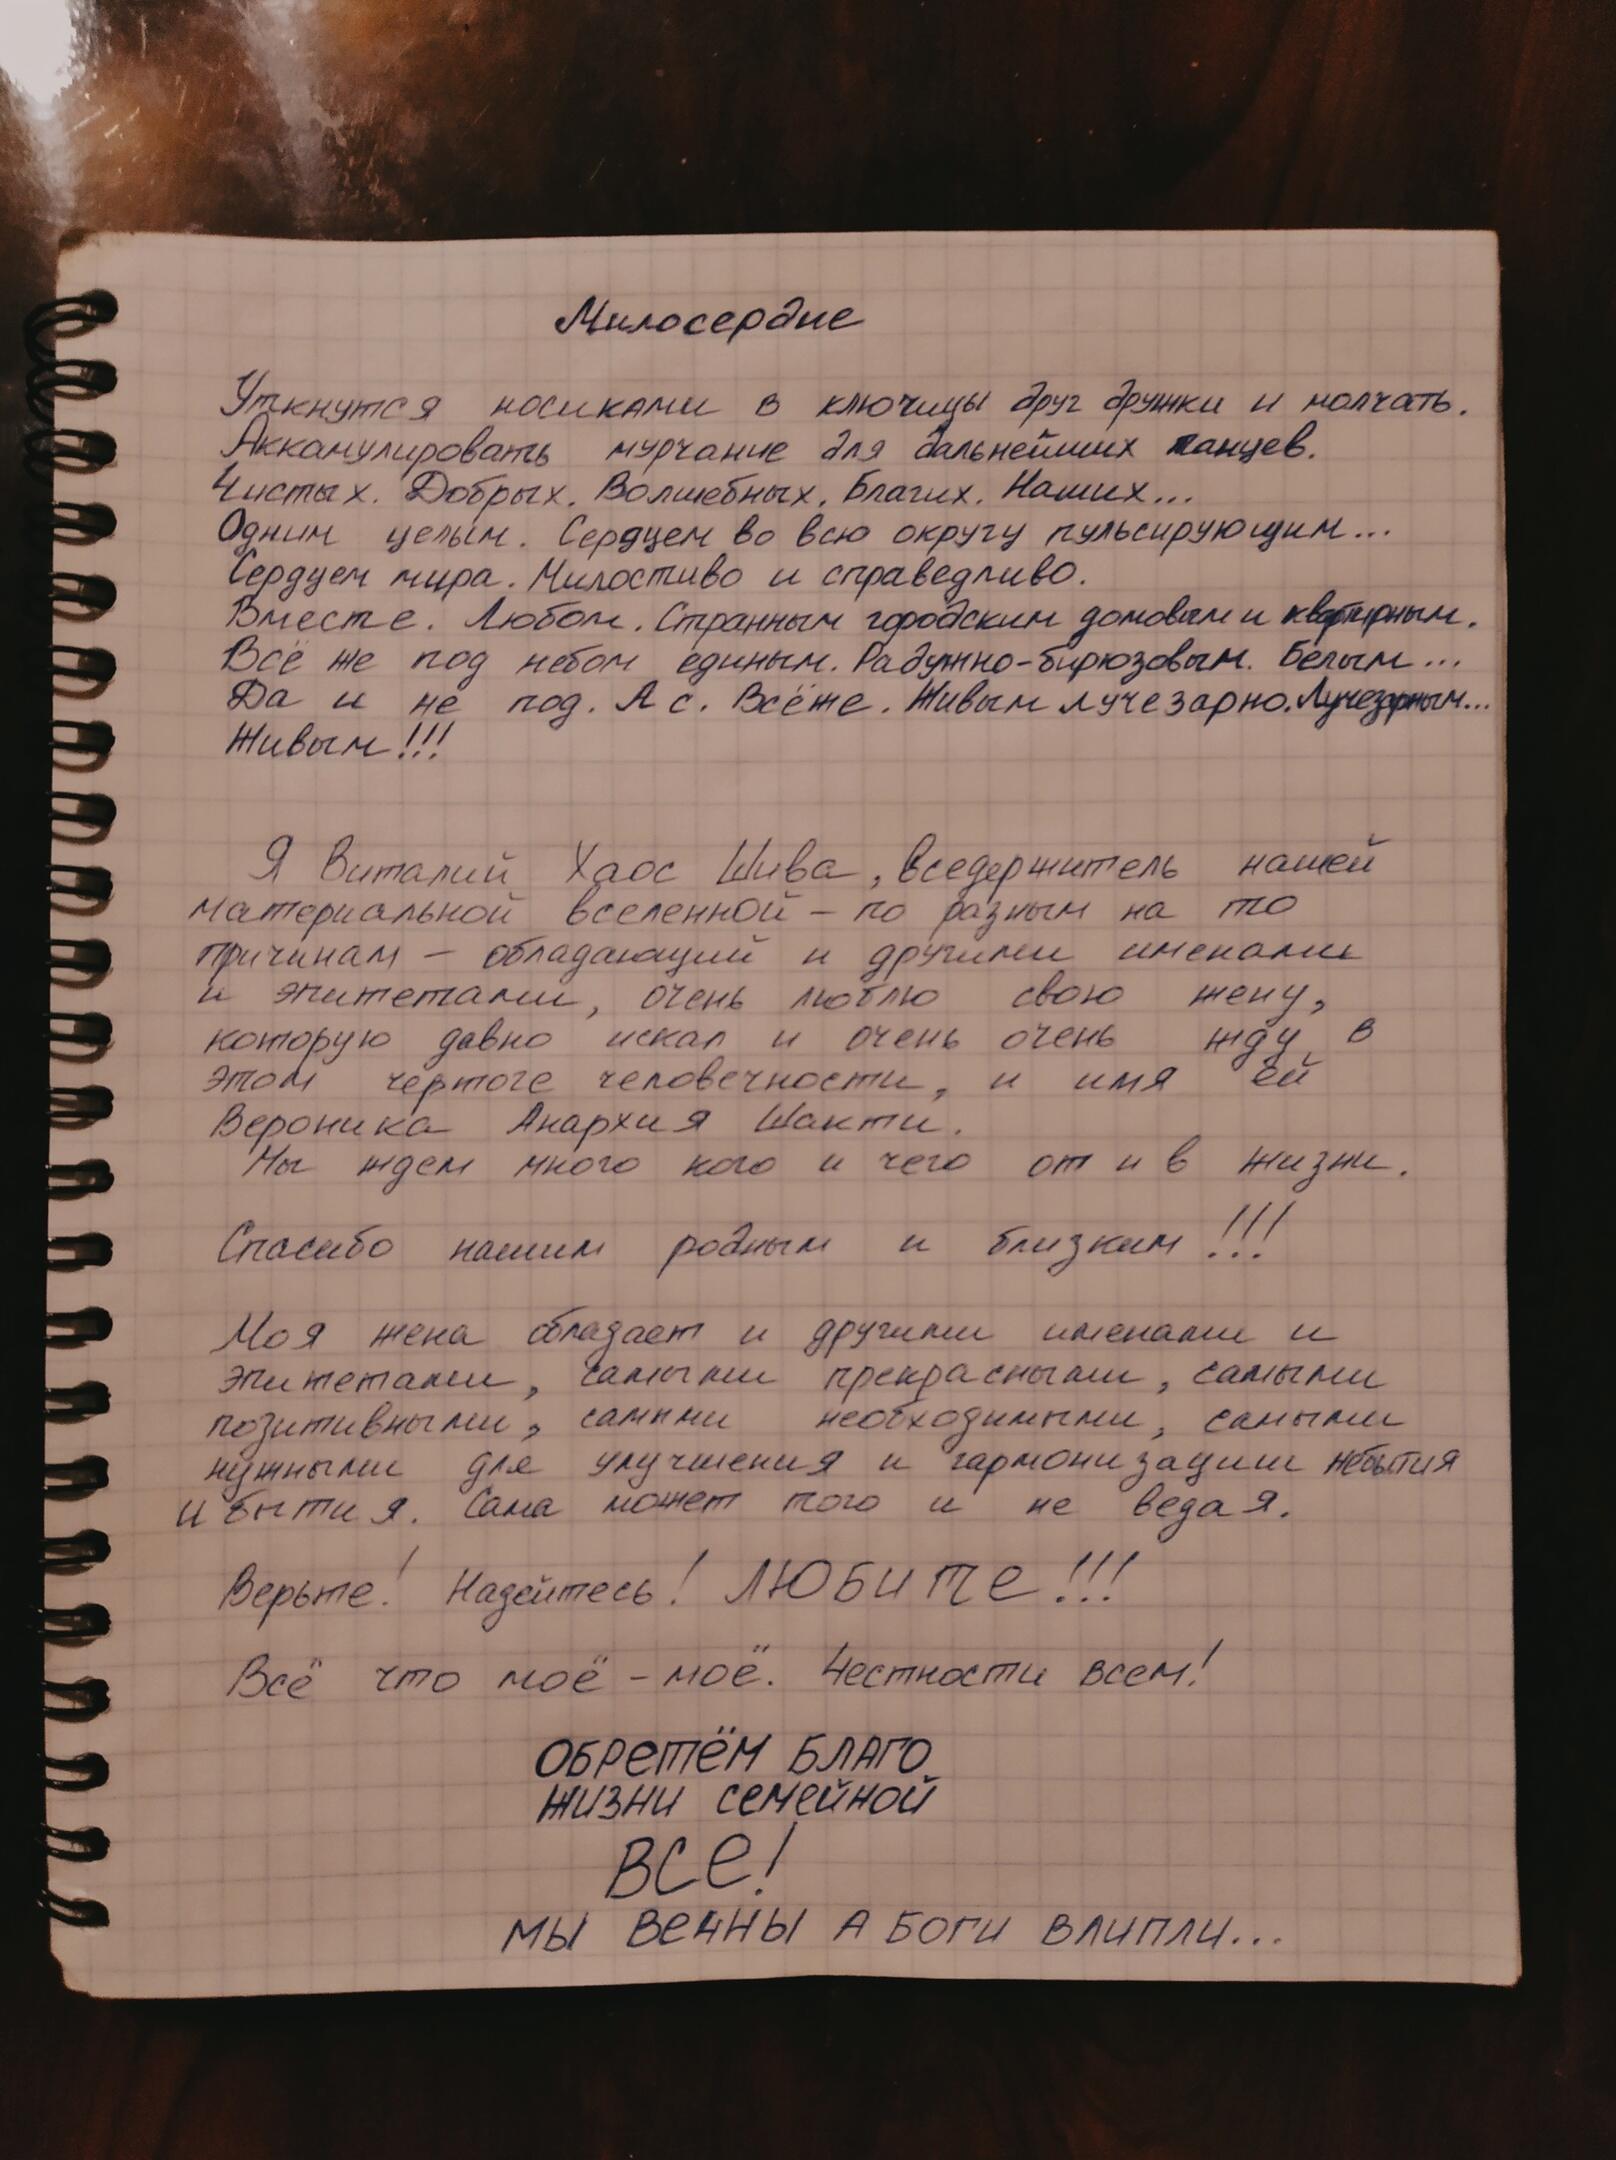 Милосердие
Уткнутся носиками в ключицы друг дружки и молчать.
Аккамулировать мурчание для дальнейших танцев.
Чистых. Добрых. Волшебных. Благих. Наших...
Одним целым. Сердцем во всю округу пульсирующим...
Сердцем мира. Милостиво и справедливо.
Вместе. Любом. Странным городским домовым и квартирным.
Всё же под небом единым. Радужно-бирюзовым. Белым...
Да и не под. А с. Всёже. Живым лучезарно. Лучезарным...
Живым!!!
Я Виталий Хаос Шива, вседержитель нашей
материальной вселенной - по разным на то
причинам - обладающий и другими именами
и эпитетами, очень люблю свою жену,
которую давно искал и очень очень жду в
этом чертоге человечности, и имя ей
Вероника Анархия Шакти.
Мы ждем много кого и чего от и в жизни.
Спасибо нашим родным и близким!!!
Моя жена обладает и другими именами и
эпитетами, самыми прекрасными, самыми
позитивными, самыми необходимыми, самыми
нужными для улучшения и гармонизации небытия
и бытия. Сама может того и не ведая.
Верьте! Надейтесь! ЛЮБИТЕ!!!
Всё что моё - моё. Честности всем!
ОБРЕТЁМ БЛАГО
ЖИЗНИ СЕМЕЙНОЙ
ВСЕ!
МЫ ВЕЧНЫ А БОГИ ВЛИПЛИ...